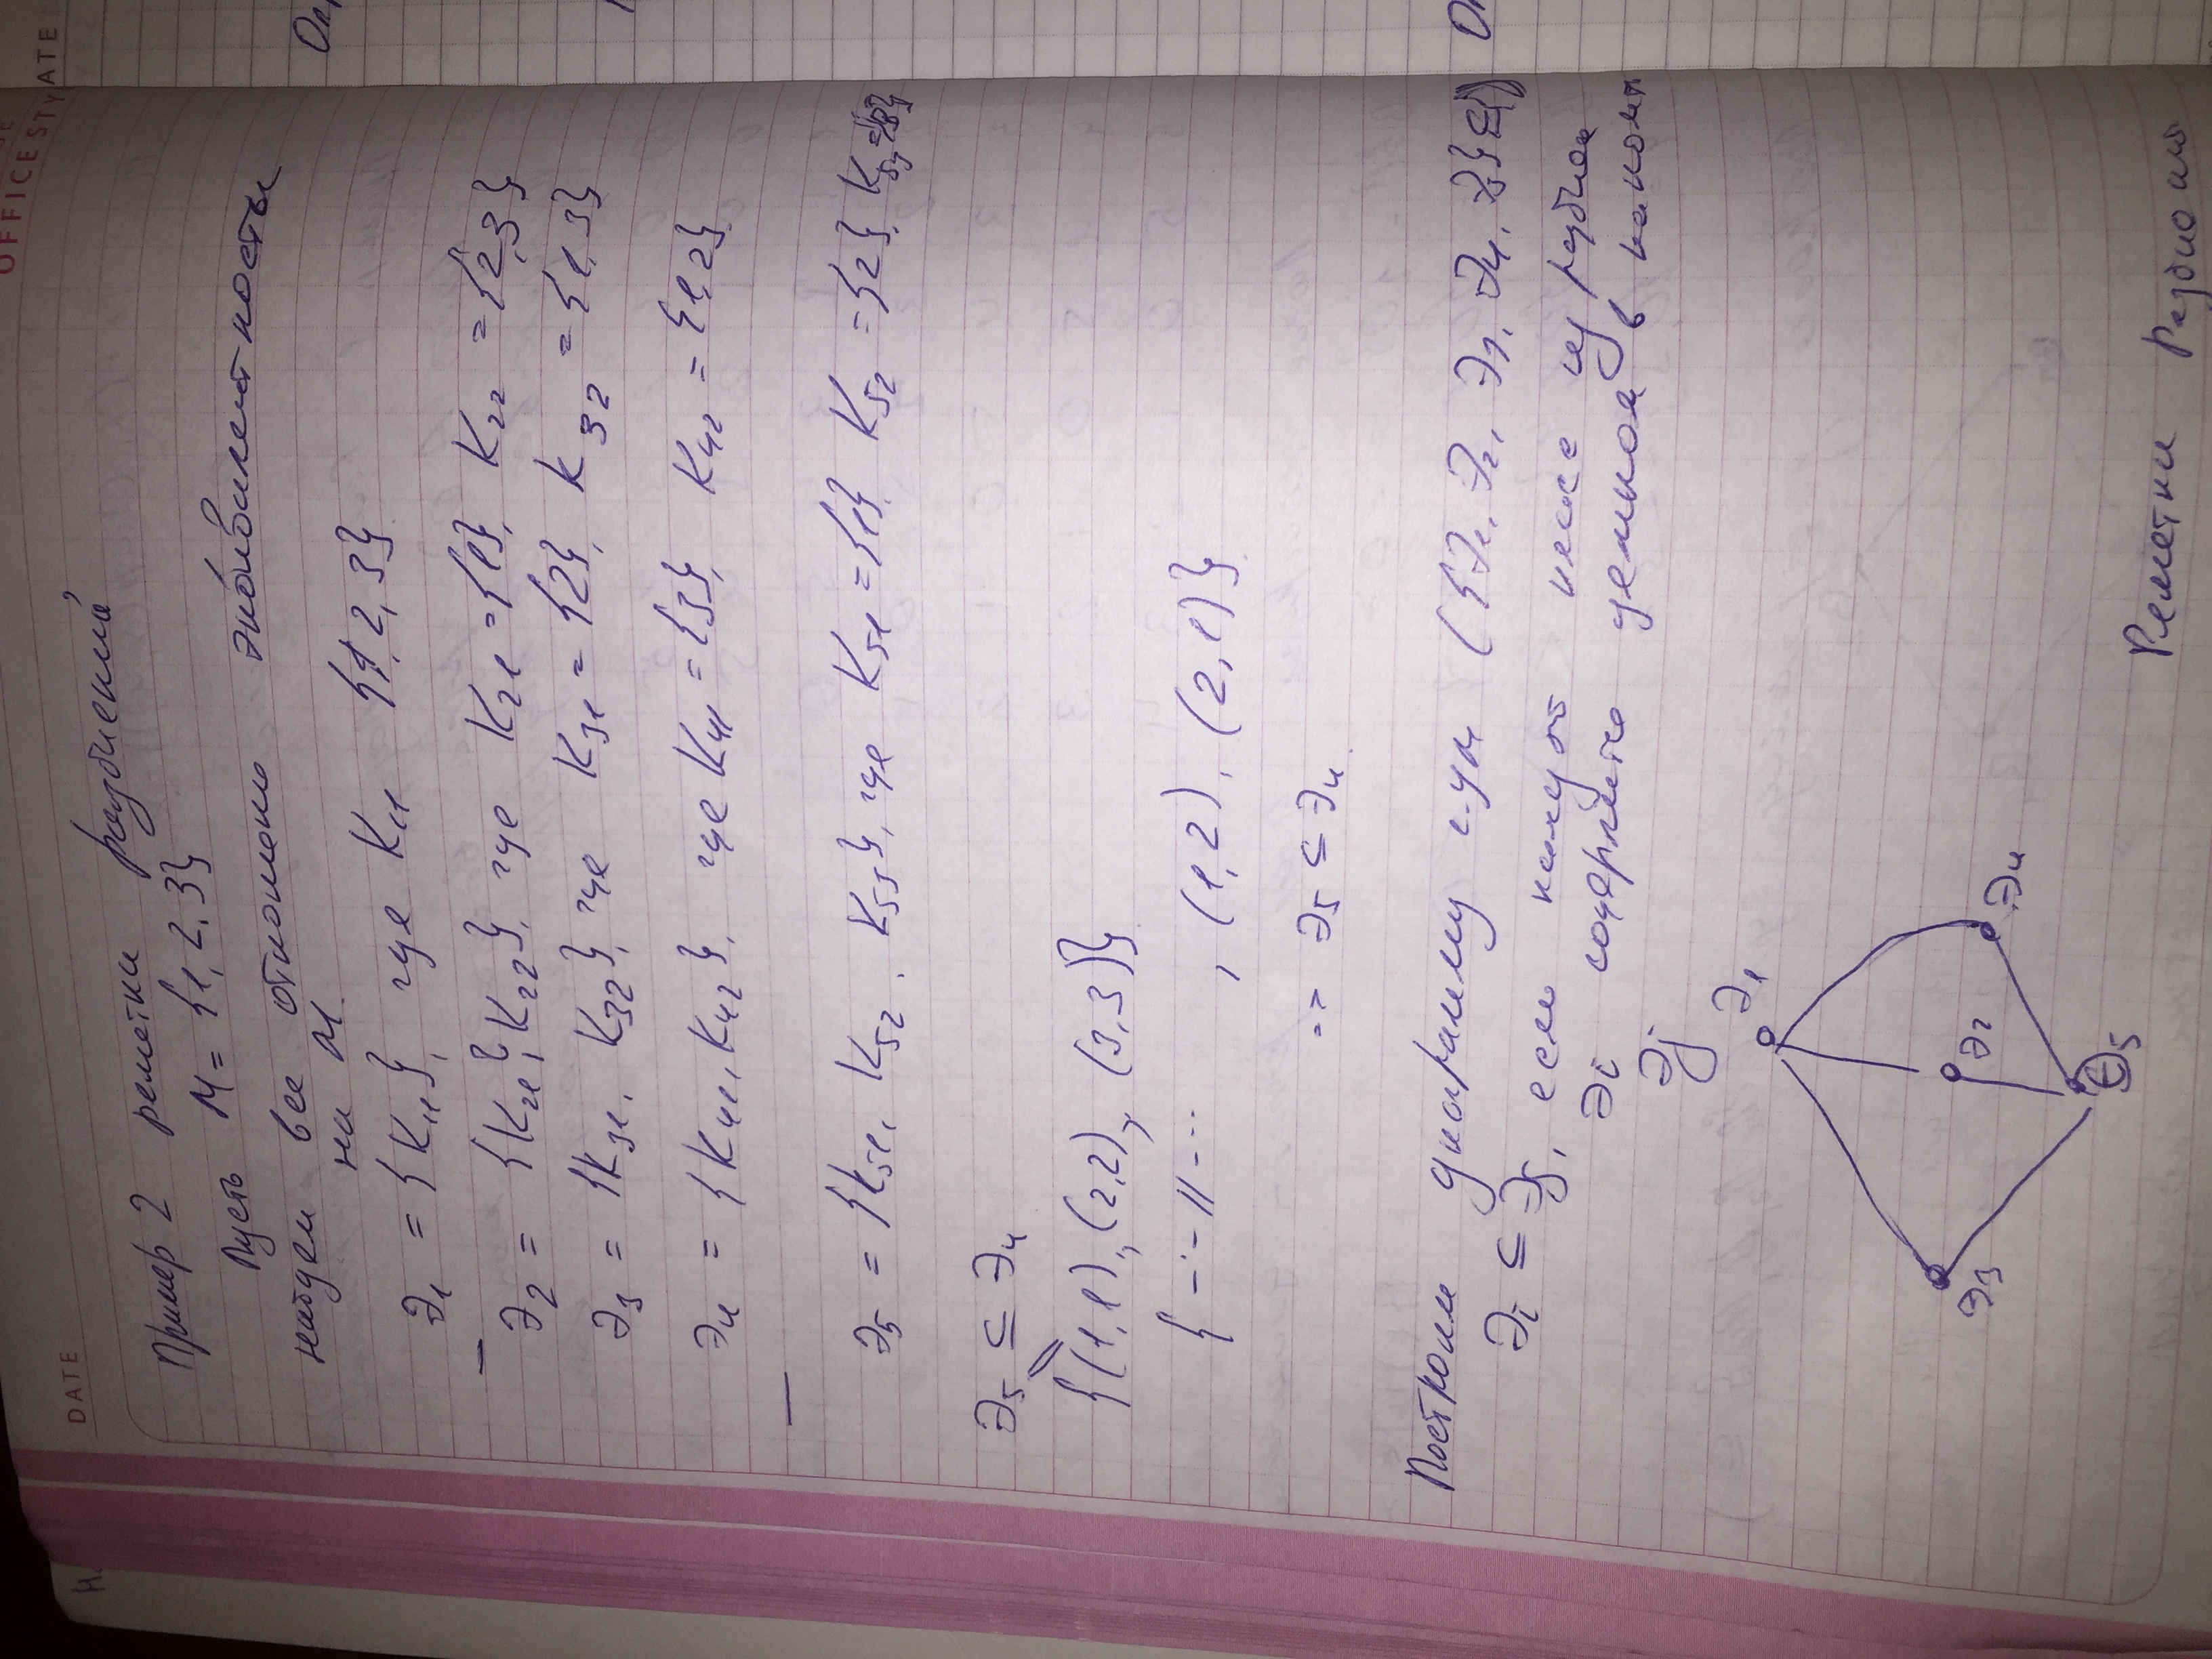 DATE
OFFICE STY
ATE
Пример 2 решетки разбиений
Пусть M = {1, 2, 3}
найдем все отношени эквивалентности
на M.
Э₁ = {K₁₁}, где K₁₁ {1, 2, 3}
Э₂ = {K₂₁, K₂₂}, где K₂₁ = {1}, K₂₂ = {2,3}
Э₃ = {K₃₁, K₃₂}, где K₃₁ = {2}, K₃₂ = {1,3}
Э₄ = {K₄₁, K₄₂}, где K₄₁ = {3}, K₄₂ = {1,2}
Э₅ = {K₅₁, K₅₂, K₅₃}, где K₅₁ = {1}, K₅₂ = {2}, K₅₃ = {3}
Э₅ ⊆ Э₄
{(1,1), (2,2), (3,3)}
{ -·-//--- , (1,2), (2,1)}
=> Э₅ ⊆ Э₄.
Построим диаграмму ({Э₁, Э₂, Э₃, Э₄, Э₅} ⊆)
Эi ⊆ Эj, если каждый класс из разбиен
Эi содержится целиком в каком-то
Эj
Э₁
Э₃
Э₂
Э₄
Э₅
Решетки Разбиений